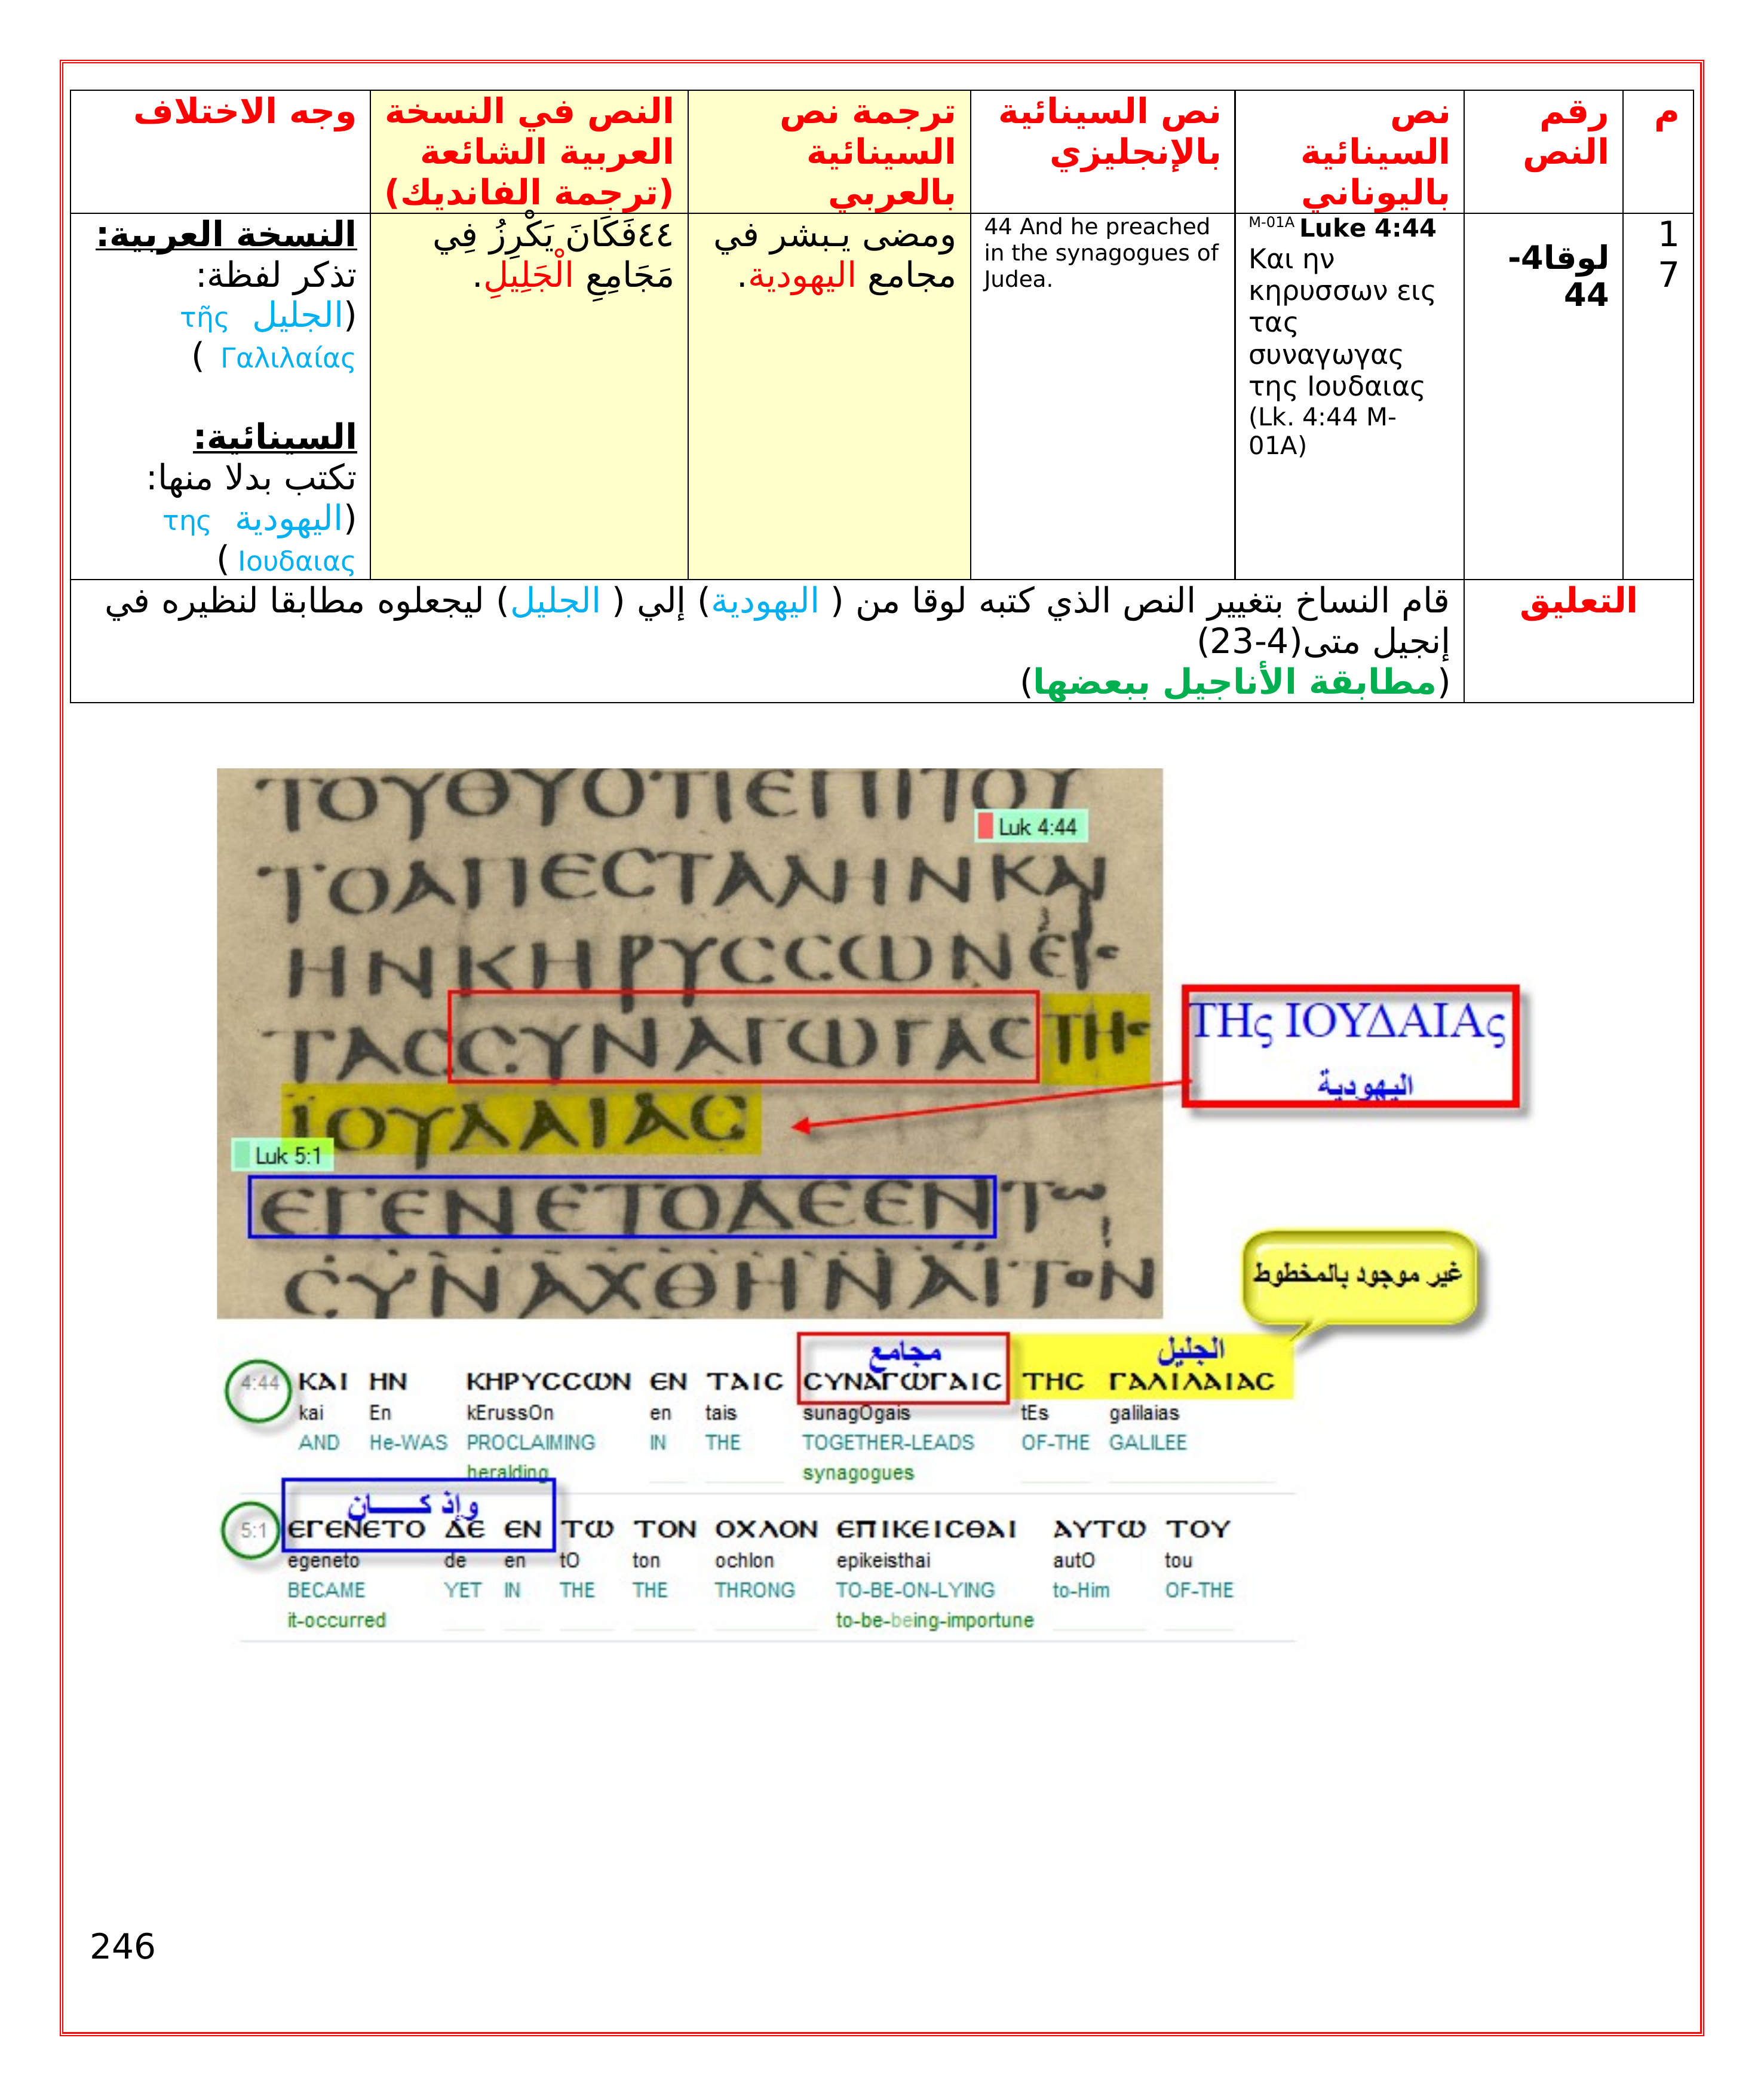 م
رقم
النص
نص
السينائية
باليوناني
نص السينائية
بالإنجليزي
ترجمة نص
السينائية
بالعربي
النص في النسخة
العربية الشائعة
(ترجمة الفانديك)
وجه الاختلاف
1
7
لوقا4-
44
M-01A Luke 4:44
Και ην
κηρυσσων εις
τας
συναγωγας
της Ιουδαιας
(Lk. 4:44 M-
01A)
44 And he preached
in the synagogues of
Judea.
ومضى يـبشر في
مجامع اليهودية.
٤٤فَكَانَ يَكْرِزُ فِي
مَجَامِعِ الْجَلِيلِ.
النسخة العربية:
تذكر لفظة:
(الجليل τῆς
Γαλιλαίας )
السينائية:
تكتب بدلا منها:
(اليهودية της
Ιουδαιας )
التعليق
قام النساخ بتغيير النص الذي كتبه لوقا من ( اليهودية) إلي ( الجليل) ليجعلوه مطابقا لنظيره في
إنجيل متى(4-23)
(مطابقة الأناجيل ببعضها)
ΤΟΥΘΥΟΤΙΕΠΙΤΟΥ
Luk 4:44
ΤΟΑΠΕϹΤΑΛΗΝΚΑΙ
ΗΝΚΗΡΥϹϹΩΝΕΙϹ
ΤΑϹϹΥΝΑΓΩΓΑϹΤΗϹ
ΪΟΥΔΑΙΑϹ
ΤΗς ΙΟΥΔΑΙΑς
اليهودية
Luk 5:1
ΕΓΕΝΕΤΟΔΕΕΝΤω
ϹΥΝΑΧΘΗΝΑΙΤΟΝ
غير موجود بالمخطوط
مجامع الجليل
4:44 ΚΑΙ ΗΝ ΚΗΡΥϹϹΩΝ ΕΝ ΤΑΙϹ ϹΥΝΑΓΩΓΑΙϹ ΤΗϹ ΓΑΛΙΛΑΙΑϹ
kai En kErussOn en tais sunagOgais tEs galilaias
AND He-WAS PROCLAIMING IN THE TOGETHER-LEADS OF-THE GALILEE
heralding synagogues
وإذ كـــــان
5:1 ΕΓΕΝΕΤΟ ΔΕ ΕΝ ΤΩ ΤΟΝ ΟΧΛΟΝ ΕΠΙΚΕΙϹΘΑΙ ΑΥΤΩ ΤΟΥ
egeneto de en tO ton ochlon epikeisthai autO tou
BECAME YET IN THE THE THRONG TO-BE-ON-LYING to-Him OF-THE
it-occurred to-be-being-importune
246